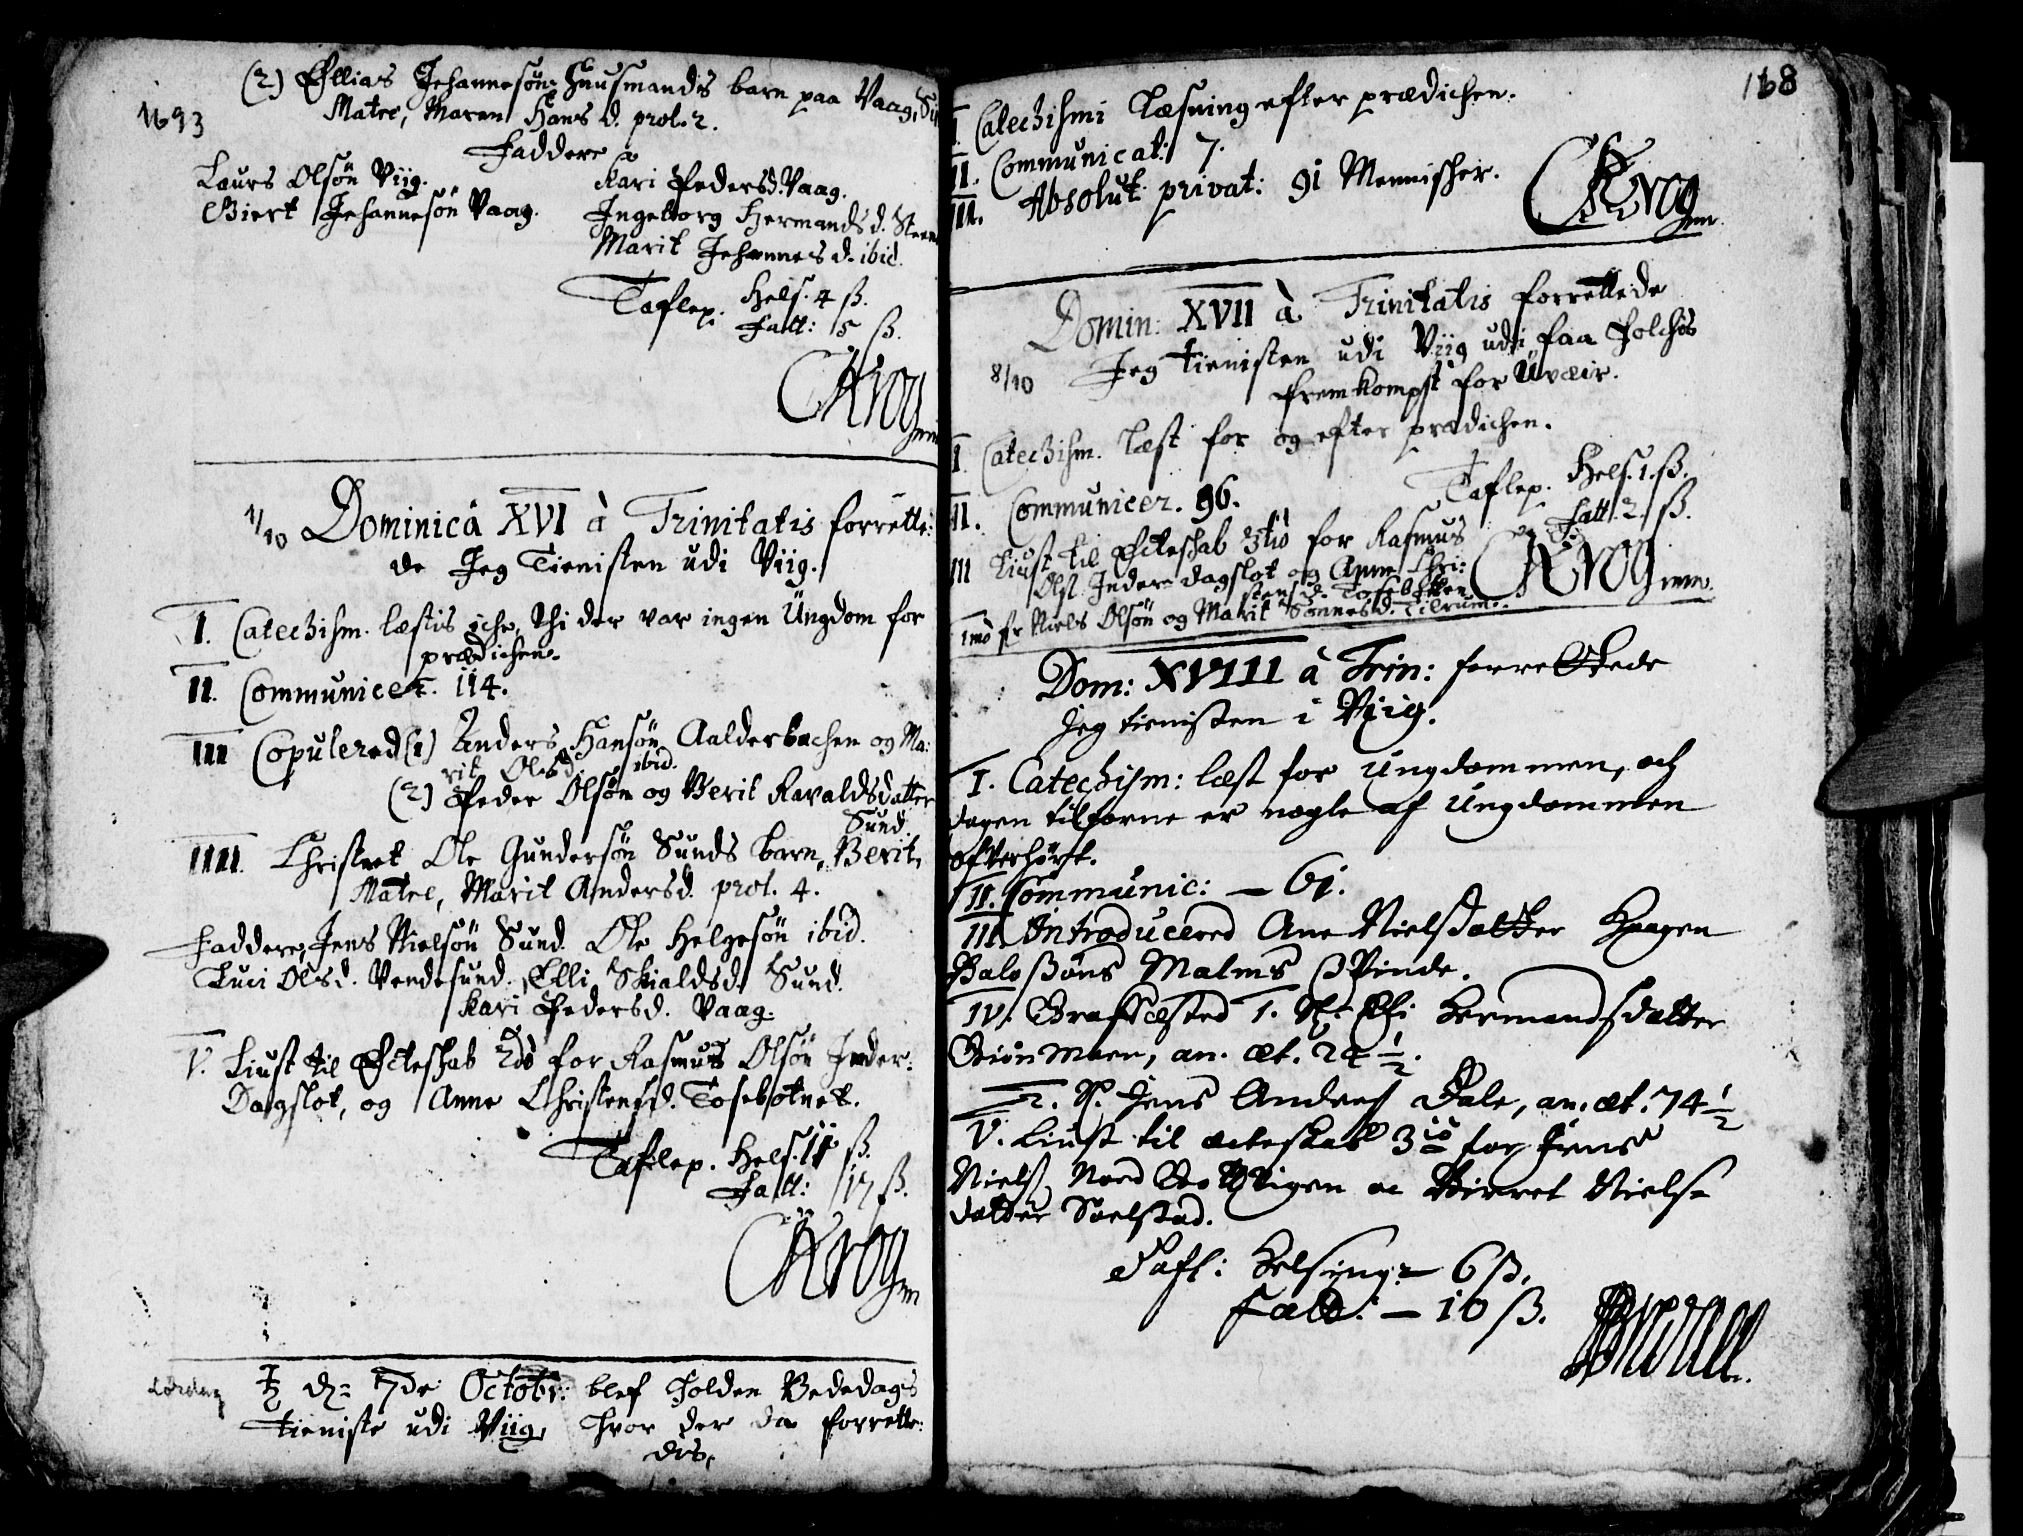 1693
(2) Ellias Johannesøns Huusmands barn paa Vaag,
Matre, Maren Hans d. prol. 2.
Faddere
Laurs Olsøn Viig.
Giert Johannesøn Vaag.
Kari Pedersd. Vaag.
Ingeborg Hermands d.
Marit Johannes d. ibid.
Taflep. Hels. 4 ß.
Fatt: 5 ß.
CKrog mm
1/10 Dominica XVI à Trinitatis forrette:
de Jeg Tienisten udi Viig.
I. Catechism. læstis iche, thi der var ingen Ungdom for
prædichen.
II. Communicer. 114.
III Copulered (1) Anders Hansøn Aalderbachen og Ma:
rit Olesd. ibid.
(2) Peder Olsøn og Berit Ravaldsdatter
Sund.
IIII. Christnet Ole Gundersøn Sunds barn, Berit,
Matre, Marit Andersd. prol. 4.
Faddere, Jens Nielsøn Sund. Ole Helgesøn ibid.
Luci Olsd. Vendesund. Elli Skialdsd. Sund.
Kari Pedersd. Vaag.
V. Liust til Ecteskab 2do for Rasmus Olsøn Inder:
Dagslot, og Anne Christensd. Tosebotnet.
Taflep. Hels. 11 ß.
Fatt: 17 ß.
CKrog mm
Lørdag
♄ d: 7de Octobr: blef holden Bededags
tieniste udi Viig, hvor der da forrette:
dis,
168
I Catechismi Læsning efter prædichen.
II. Communicat: 7.
III. Absolut. privat: 91 Mennisker.
CKrog mm.
Domin: XVII à Trinitatis forrettede
8/10 Jeg Tienisten udi Viig udi faa Folchis
fremkompst for Uvæir.
I. Catechism. læst for og efter prædichen.
II. Communicer. 96.
Taflep. Hels. 1. ß.
Fatt. 2. ß.
III Liust til Ecteskab 3tiò for Rasmus
Ols. Inder dagslot og Anne Chri:
stensd. Tosebotten
1mò fr Niels Olsøn og Marit Sonnesd. Tilrum.
CKrog mm.
Dom: XVIII à Trin: forrettede
Jeg tienisten i Viig.
I. Catechism: læst for Ungdommen, och
dagen tilforne er nogle af Ungdommen
ofverhørt.
II. Communic: — 61.
III. Introducered Ane Nielsdatter Haagen
Malms qvinde.
IV. Graffæsted 1. Sl. Elsi Hermandsdatter
an. æt. 24 1/2.
2. S. Jens Anders Dale, an. æt. 74 1/2
V. Liust til ecteskab 3io for Jens
Niels. Nord oc Birret Niels
datter Sælstad.
Tafl: Helsing: — 6 ß.
Fatt: — 10 ß.